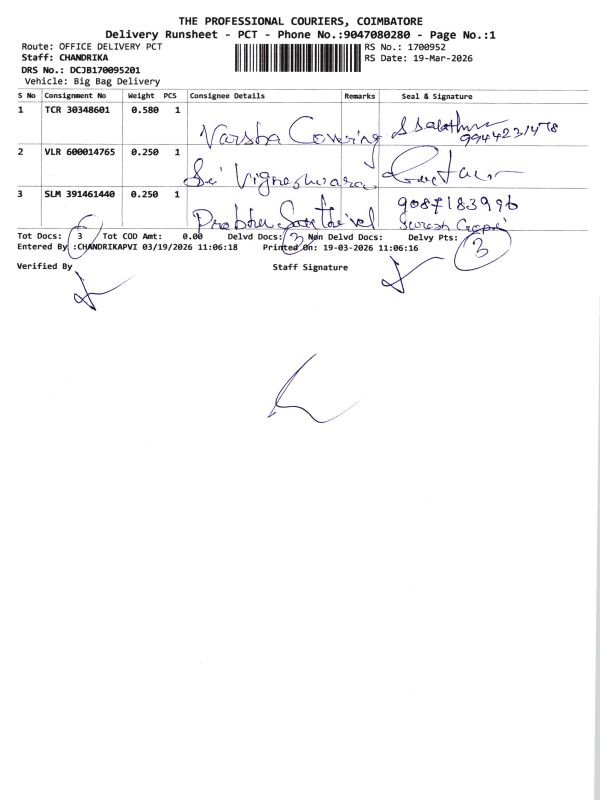 THE PROFESSIONAL COURIERS, COIMBATORE
Delivery Runsheet - PCT - Phone No.:9047080280 - Page No.:1
Route: OFFICE DELIVERY PCT
RS No.: 1700952
Staff: CHANDRIKA
RS Date: 19-Mar-2026
DRS No.: DCJB170095201
Vehicle: Big Bag Delivery
S No Consignment No Weight PCS Consignee Details Remarks Seal & Signature
1 TCR 30348601 0.580 1 Varsha Covering 9944231478
2 VLR 600014765 0.250 1 Sri Vigneshwara
3 SLM 391461440 0.250 1 Prabhu Santhivel 9087183996 Suresh
Tot Docs: 3 Tot COD Amt: 0.00 Delvd Docs: 3 Non Delvd Docs: Delvy Pts: 3
Entered By :CHANDRIKAPVI 03/19/2026 11:06:18 Printed On: 19-03-2026 11:06:16
Verified By Staff Signature